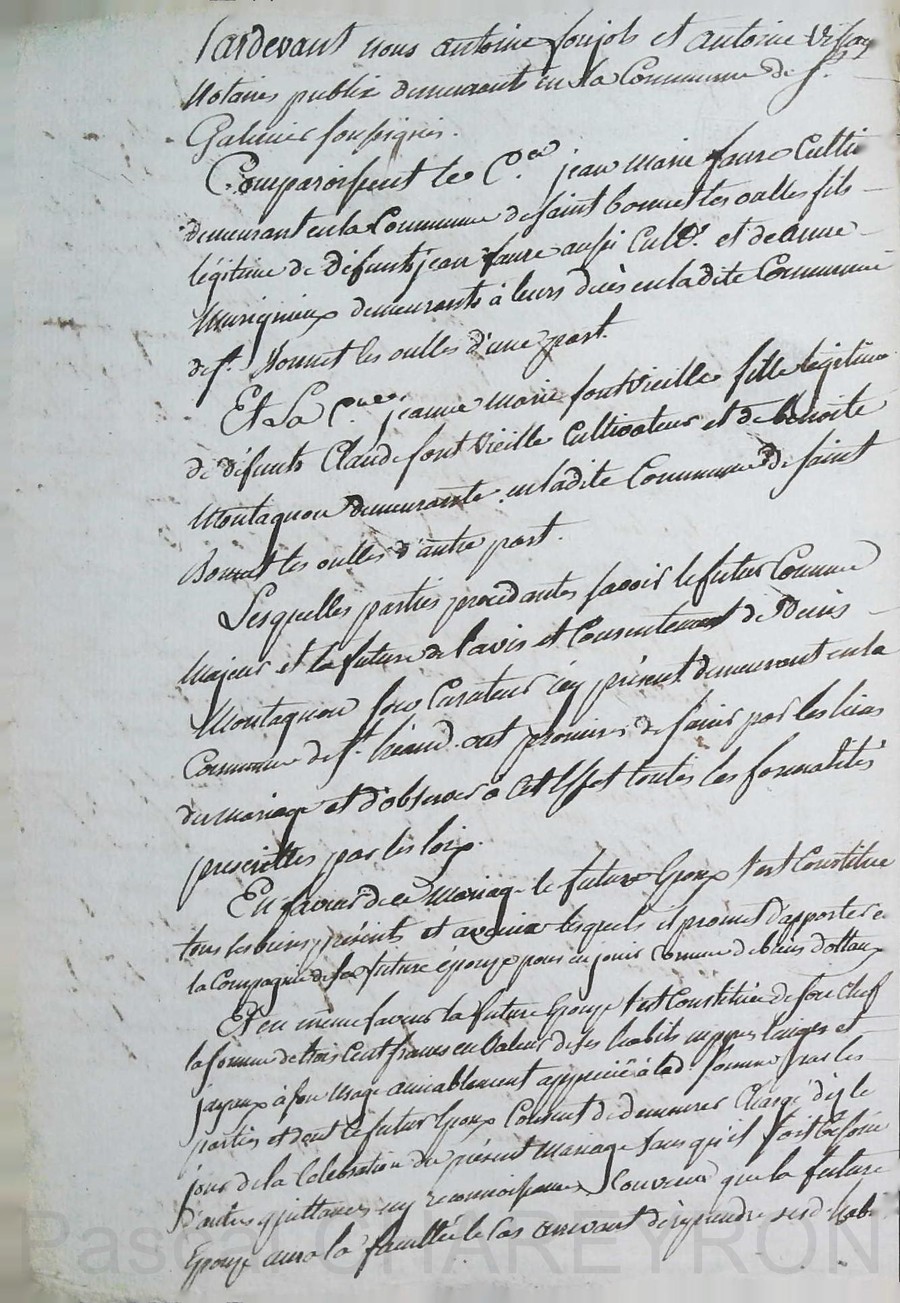 Pardevant nous antoine foujols et antoine
Notaires publix demeurant en la Commune de St.
Galmier soussignés.
Comparoissent le C.en jean marie faure Culti
demeurant en la Commune de saint bonnet les oulles fils
légitime de défunts jean faure aussi Cultr. et de anne
Murigneux demeurants à leurs décès en ladite Commune
de st. Bonnet les oulles d'une part.
Et La C.ne jeanne marie fontvieille fille légitime
de défunts Claude fontvieille Cultivateur et de benoite
Montagnon demeurante en ladite Commune de saint
Bonnet les oulles d'autre part.
Lesquelles parties procédantes savoir le futur Comme
Majeur et la future de l'avis et Consentement de Denis
Montagnon son Curateur icy présent demeurant en la
Commune de st. héand ont promis de s'unir par les liens
du mariage et d'observer à Cet Effet toutes les formalités
prescrittes par les loix.
En faveur de ce mariage le futur Epoux s'est Constitué
tous ses biens présents et avenir lesquels il promet d'apporter e
la Compagnie de sa future épouse pour en jouir comme de biens dottaux
Et en même faveur la future Epouse s'est Constituée de son Chef
la somme de trois Cent francs en Valeur de ses habits nippes linges et
joyaux à son Usage amiablement appréciée à lad. somme par les
parties et dont le futur Epoux Consent de demeurer Chargé dès le
jour de la Célébration du présent mariage sans qu'il soit besoin
d'autres quittances ny reconnoissances Convenu que la future
Epouse aura la faculté le Cas arrivant de reprendre sesd. hab
Pascal CHAREYRON